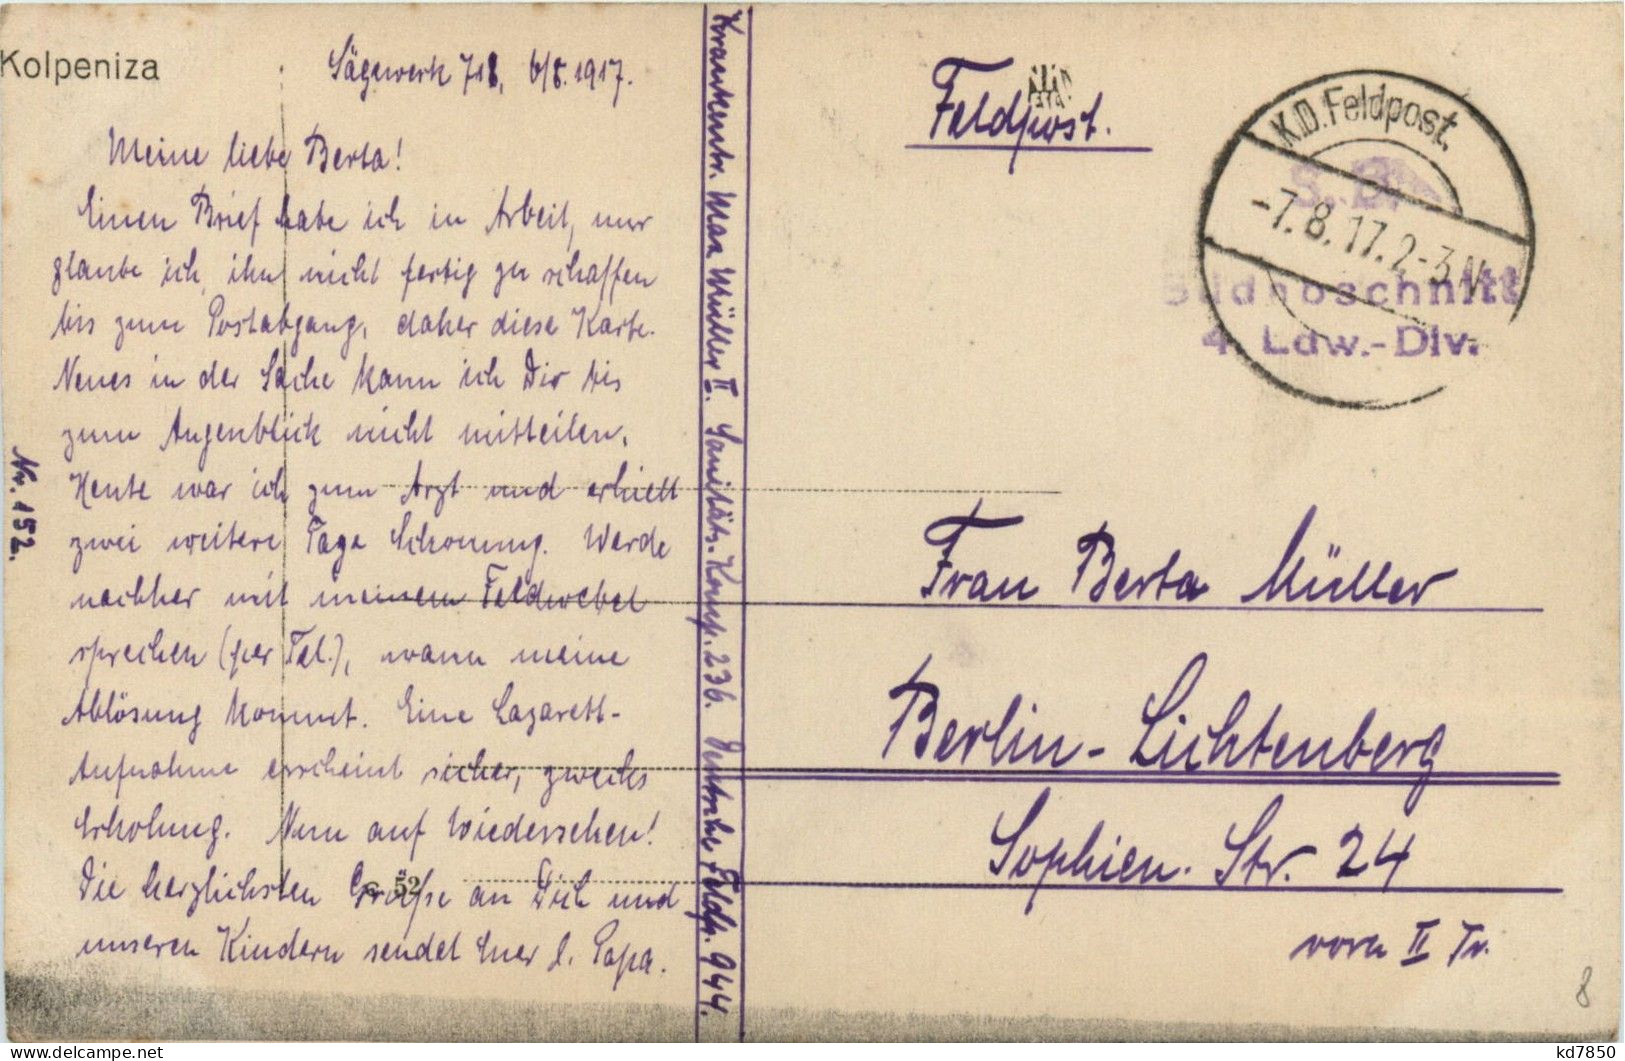 Kolpeniza
Sägewerk 718, 6/8. 1917.
Meine liebe Berta!
Einen Brief habe ich in Arbeit, nur
glaube ich, ihn nicht fertig zu schaffen
bis zum Postabgang, daher diese Karte.
Neues in der Sache kann ich Dir bis
zum Augenblick nicht mitteilen.
Heute war ich zum Arzt und erhielt
zwei weitere Tage Schonung. Werde
nachher mit meinem Feldwebel
sprechen (per Tel.), wann meine
Ablösung kommt. Eine Lazarett-
Aufnahme erscheint sicher, zwecks
Erholung. Nun auf Wiedersehen!
Die herzlichsten Grüße an Dich und
unseren Kindern sendet Euer l. Papa.
Nr. 152.
52
Krankentr. Max Müller II. Sanitäts-Komp. 236. Deutsche Feldp. 944.
Feldpost.
K.D. Feldpost.
-7.8.17. 2-3 N
S. B.
Südabschnitt
4. Ldw.-Div.
Frau Berta Müller
Berlin-Lichtenberg
Sophien-Str. 24
vorn II Tr.
8
kd7850